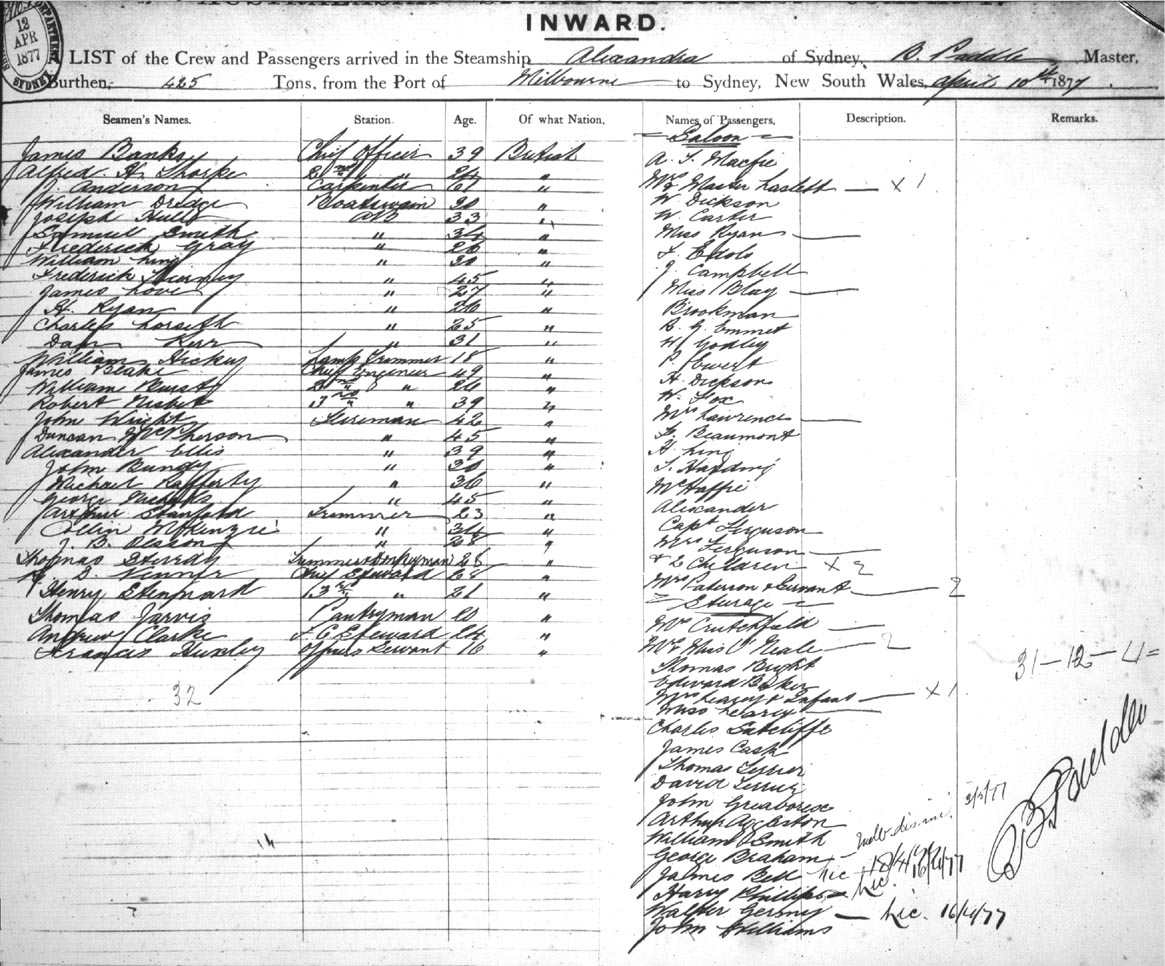 12
APR
1877
SYDNEY
INWARD.
A LIST of the Crew and Passengers arrived in the Steamship Alexandra of Sydney, Master,
Burthen, 425 Tons, from the Port of Melbourne to Sydney, New South Wales, April 10th 1877
Seamen's Names. Station. Age. Of what Nation, Names of Passengers, Description. Remarks.
James Banks Chief Officer 39 British
Alfred H. Thorpe 2nd "
J. Anderson Carpenter 61 "
William Dredge Boatswain 30 "
Joseph AB 33 "
Samuel Smith " 34 "
Frederick Gray " 28 "
William King " 30 "
Frederick " 45 "
James Love " 27 "
H. Ryan " 26 "
Charles " 25 "
Dan Kerr " 31 "
William Hickey Lamp Trimmer 18 "
James Blake Chief Engineer 49 "
William 2nd " 26 "
Robert Nisbet 3rd " 39 "
John Wright Fireman 42 "
Duncan McPherson " 45 "
Alexander Ellis " 39 "
John Bundy " 30 "
Michael Rafferty " 36 "
George " 45 "
Arthur Stanfield Trimmer 23 "
Ollin McKenzie " 34 "
J. B. Olsson " 28 "
Thomas Sturdy Trimmer & Donkeyman 28 "
Chief Steward "
Henry 2nd " 21 "
Thomas Jarvis Pantryman 20 "
Andrew Clarke F. C. Steward 24 "
Francis Huxley Officers Servant 16 "
32
Saloon
A. S. Macfie
Mrs & Master Haslett — X 1
W. Dickson
W. Carter
Miss Ryan —
J. Campbell
Miss Blay —
Brookman
R. G. Emmet
H. Godley
P. Ewert
H. Dickson
W. Fox
Mrs Lawrence —
F. Beaumont
H. King
S. Harding
McHaffie
Alexander
Capt Ferguson
Mrs Ferguson —
& 2 Children X 2
Mrs Paterson & Servant — 2
Steerage
Mrs Crutchfield —
Mrs Miss O'Neale — 2
Thomas Bright
Edward Baker
Mrs Leary & Infant — X 1
Miss Leary —
Charles Sutcliffe
James Cash
Thomas
David
John Greatorex
Arthur Aggeston
William Smith
George Braham
James Bell Lic 18/4/77
Harry Phillips — Lic. 16/4/77
Walter — Lic. 16/4/77
John Williams
31-12-4=